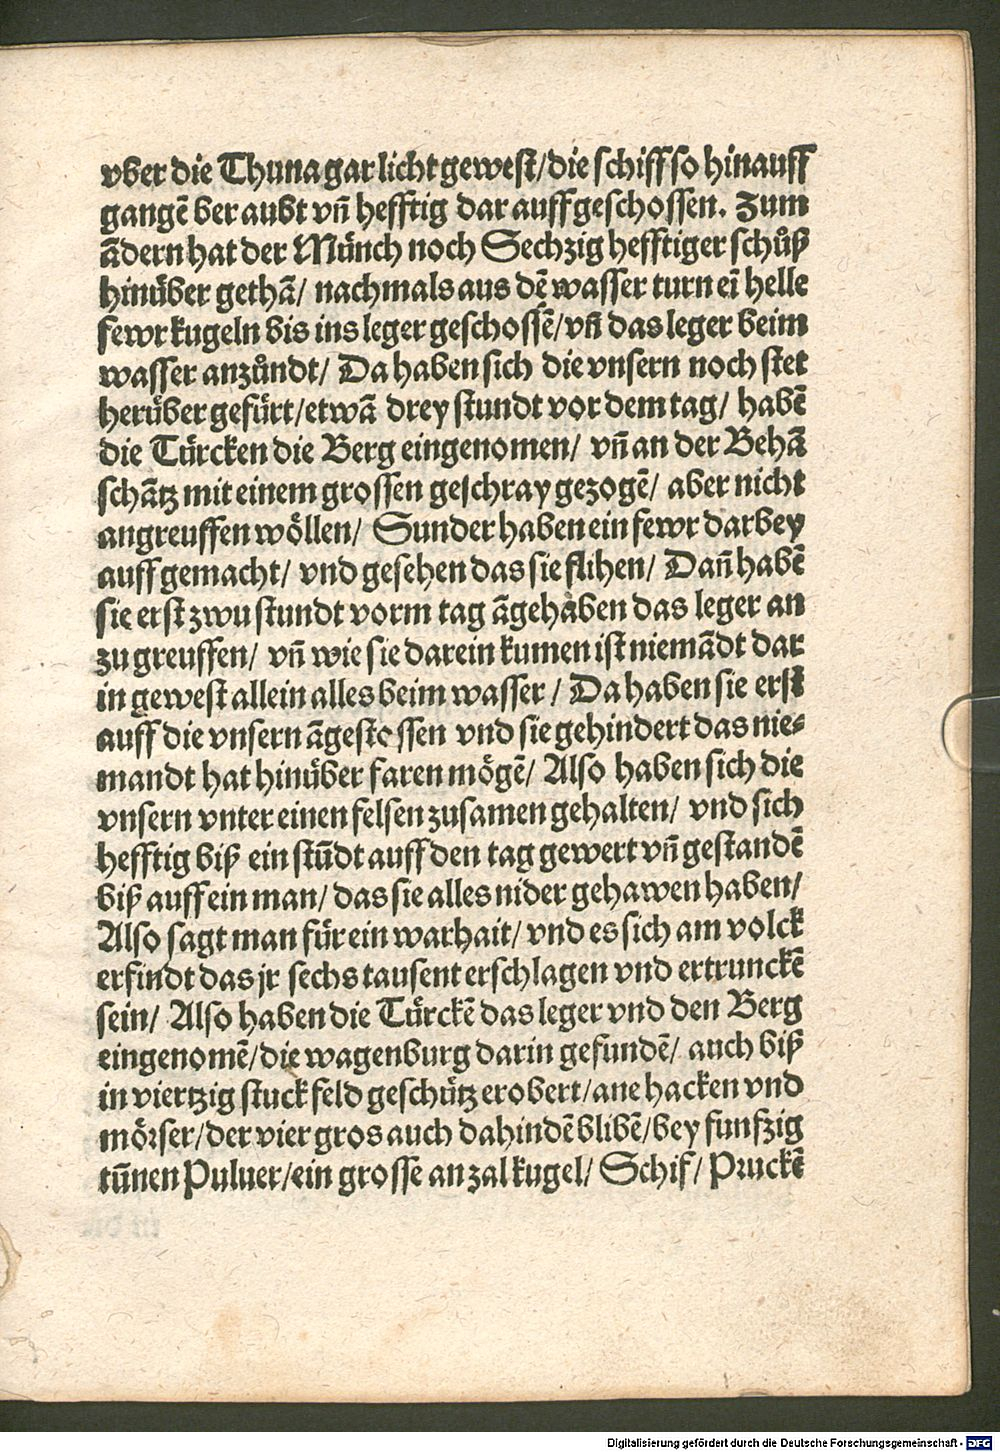 vber die Thuna gar licht gewest/die schiff so hinauff
gangē ber aubt vñ hefftig dar auff geschossen. Zum
ādern hat der Münch noch Sechzig hefftiger schůß
hinüber gethā/ nachmals aus dē wasser turn eī helle
fewr kugeln bis ins leger geschossē/vñ das leger beim
wasser anzůndt/ Da haben sich die vnsern noch stet
herüber gefürt/etwā drey stundt vor dem tag/ habē
die Türcken die Berg eingenomen/ vñ an der Behā
schātz mit einem grossen geschray gezogē/ aber nicht
angreuffen wöllen/ Sunder haben ein fewr darbey
auff gemacht/ vnd gesehen das sie flihen/ Dañ habē
sie erst zwu stundt vorm tag āgehaben das leger an
zu greuffen/ vñ wie sie darein kumen ist niemādt dar
in gewest allein alles beim wasser / Da haben sie erst
auff die vnsern āgestossen vnd sie gehindert das nie⸗
mandt hat hinüber faren mögē/ Also haben sich die
vnsern vnter einen felsen zusamen gehalten/ vnd sich
hefftig biß ein stūdt auff den tag gewert vñ gestandē
biß auff ein man/ das sie alles nider gehawen haben/
Also sagt man für ein warhait/ vnd es sich am volck
erfindt das jr sechs tausent erschlagen vnd ertrunckē
sein/ Also haben die Türckē das leger vnd den Berg
eingenomē/die wagenburg darin gefundē/ auch biß
in viertzig stuck feld geschütz erobert/ane hacken vnd
mörser/der vier gros auch dahindē blibē/bey funfzig
tūnen Puluer/ein grosse anzal kugel/ Schif/ Pruckē
Digitalisierung gefördert durch die Deutsche Forschungsgemeinschaft - DFG